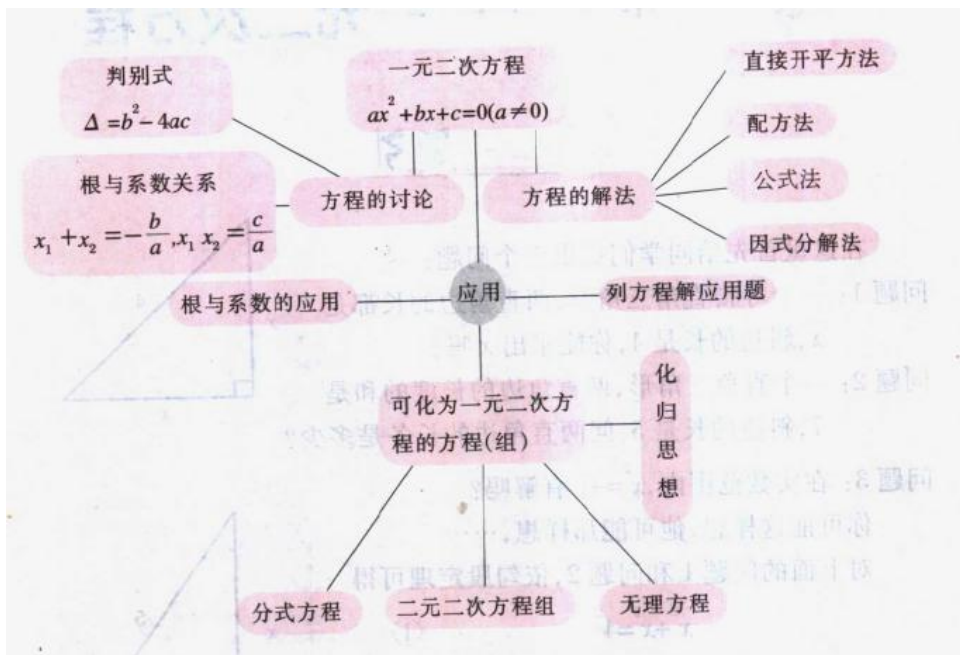 判别式
Δ=b²-4ac
一元二次方程
ax²+bx+c=0(a≠0)
直接开平方法
配方法
公式法
因式分解法
根与系数关系
x₁+x₂=-b/a,x₁x₂=c/a
方程的讨论
方程的解法
根与系数的应用
应用
列方程解应用题
可化为一元二次方
程的方程(组)
化
归
思
想
分式方程
二元二次方程组
无理方程